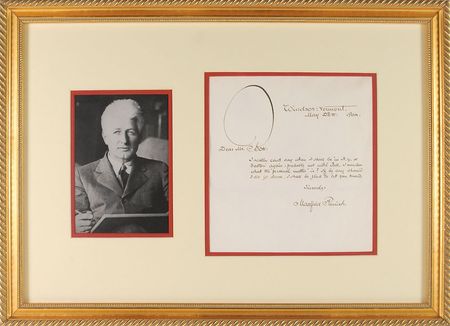 Windsor: Vermont.
May 28th:
Dear Mr.
I really can't say when I shall be in N.y. or
Boston again - probably not until Fall. I wonder
what the personal matter is? If by any chance
I do go down, I shall be glad to let you know.
Sincerely
Maxfield Parrish.